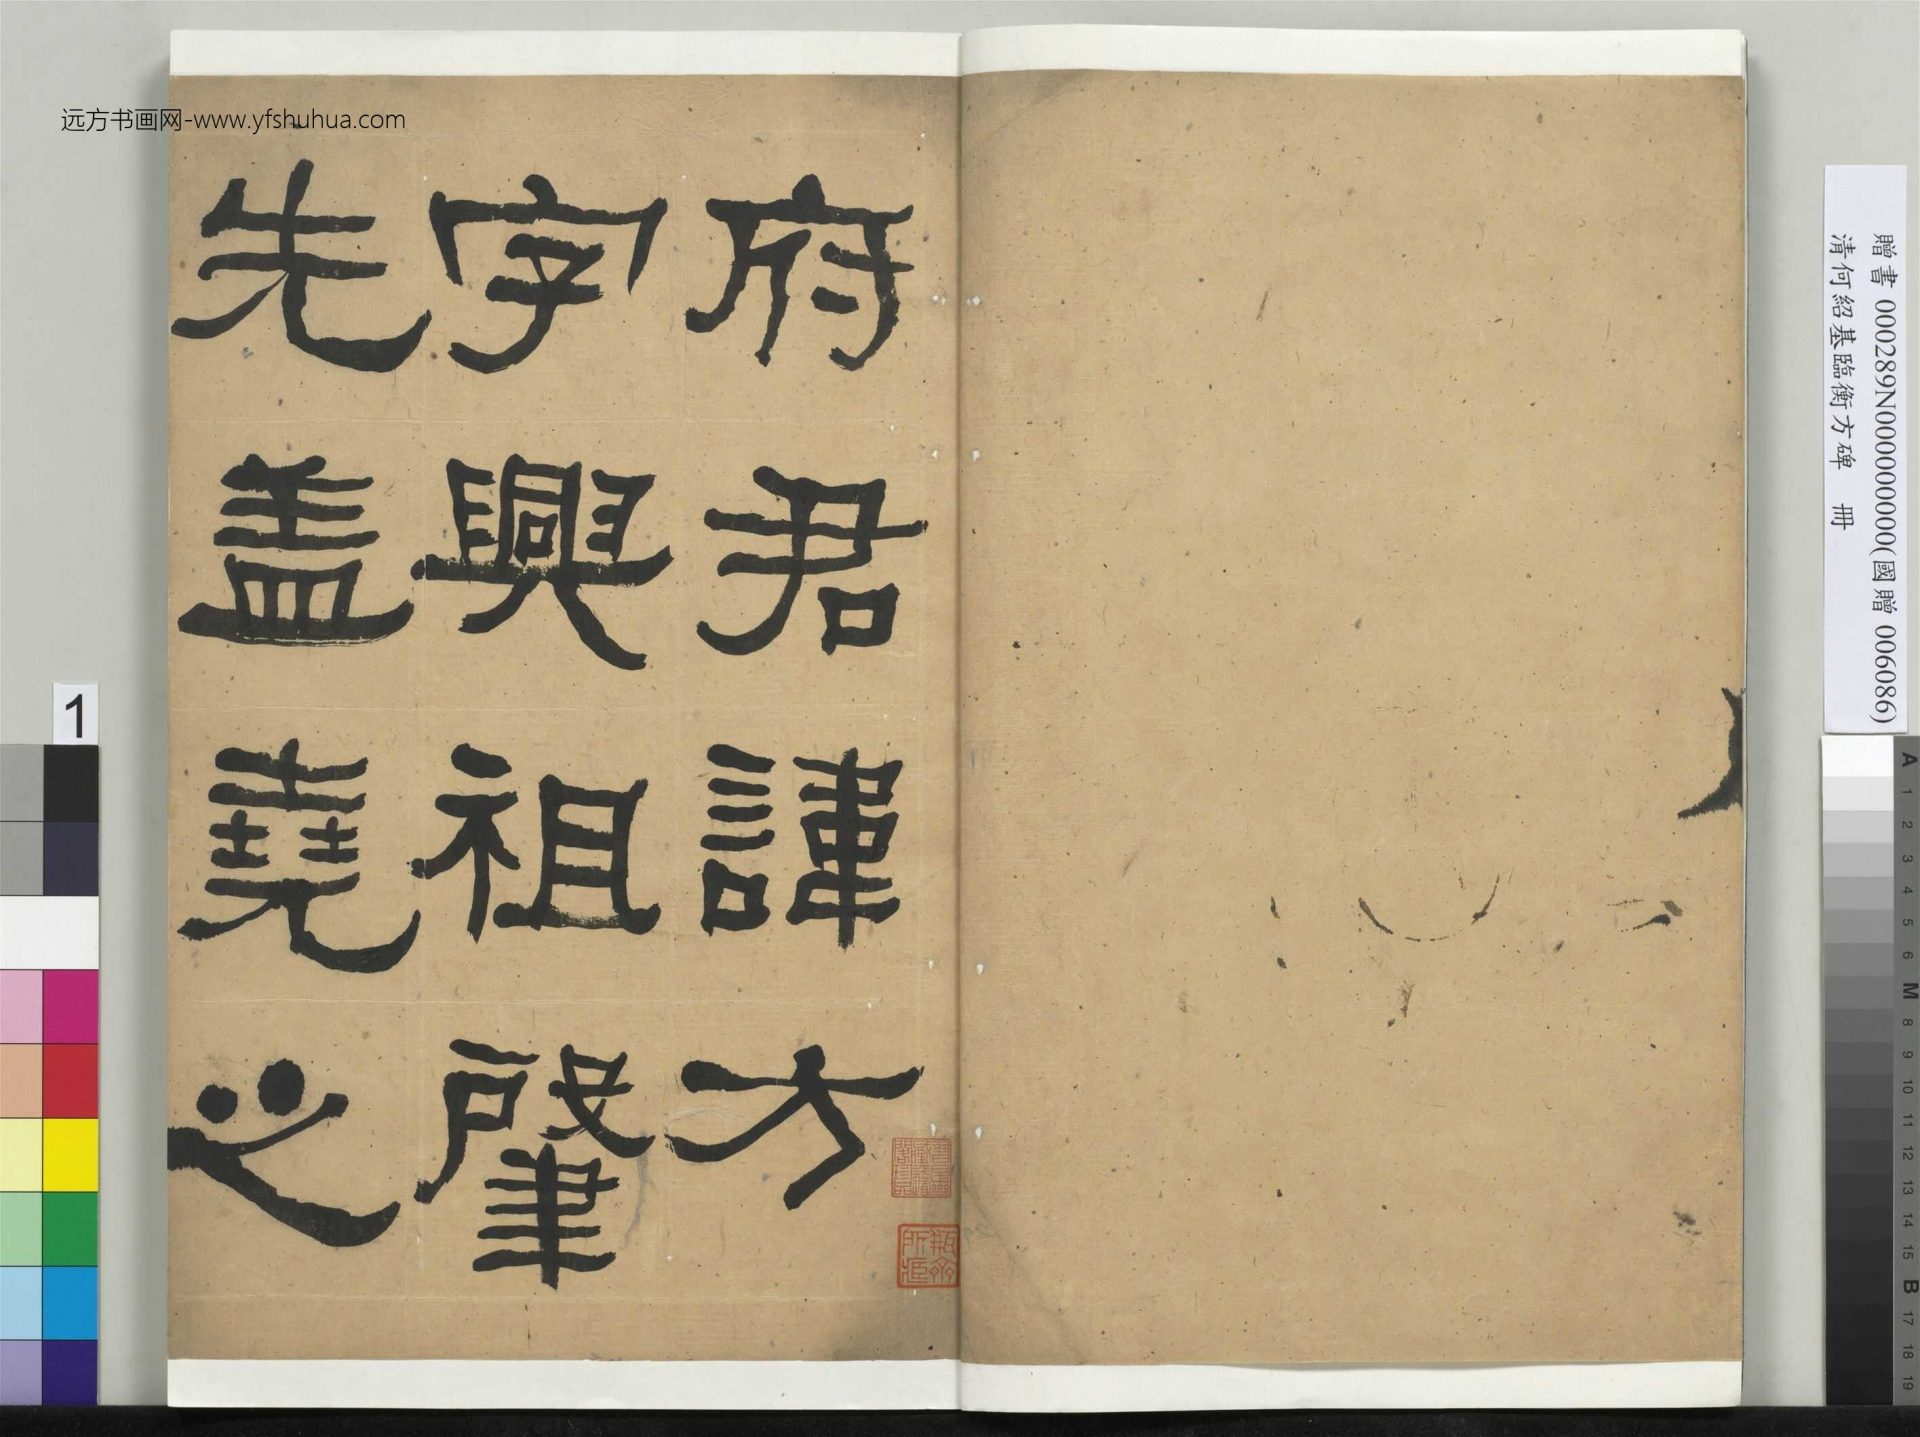 远方书画网-www.yfshuhua.com
府君諱方
字興祖肈
先盖堯之
贈書 000289N000000000(國贈 006086)
清何紹基臨衡方碑 冊
1
A
1
2
3
4
5
6
M
8
9
10
11
12
13
14
15
B
17
18
19